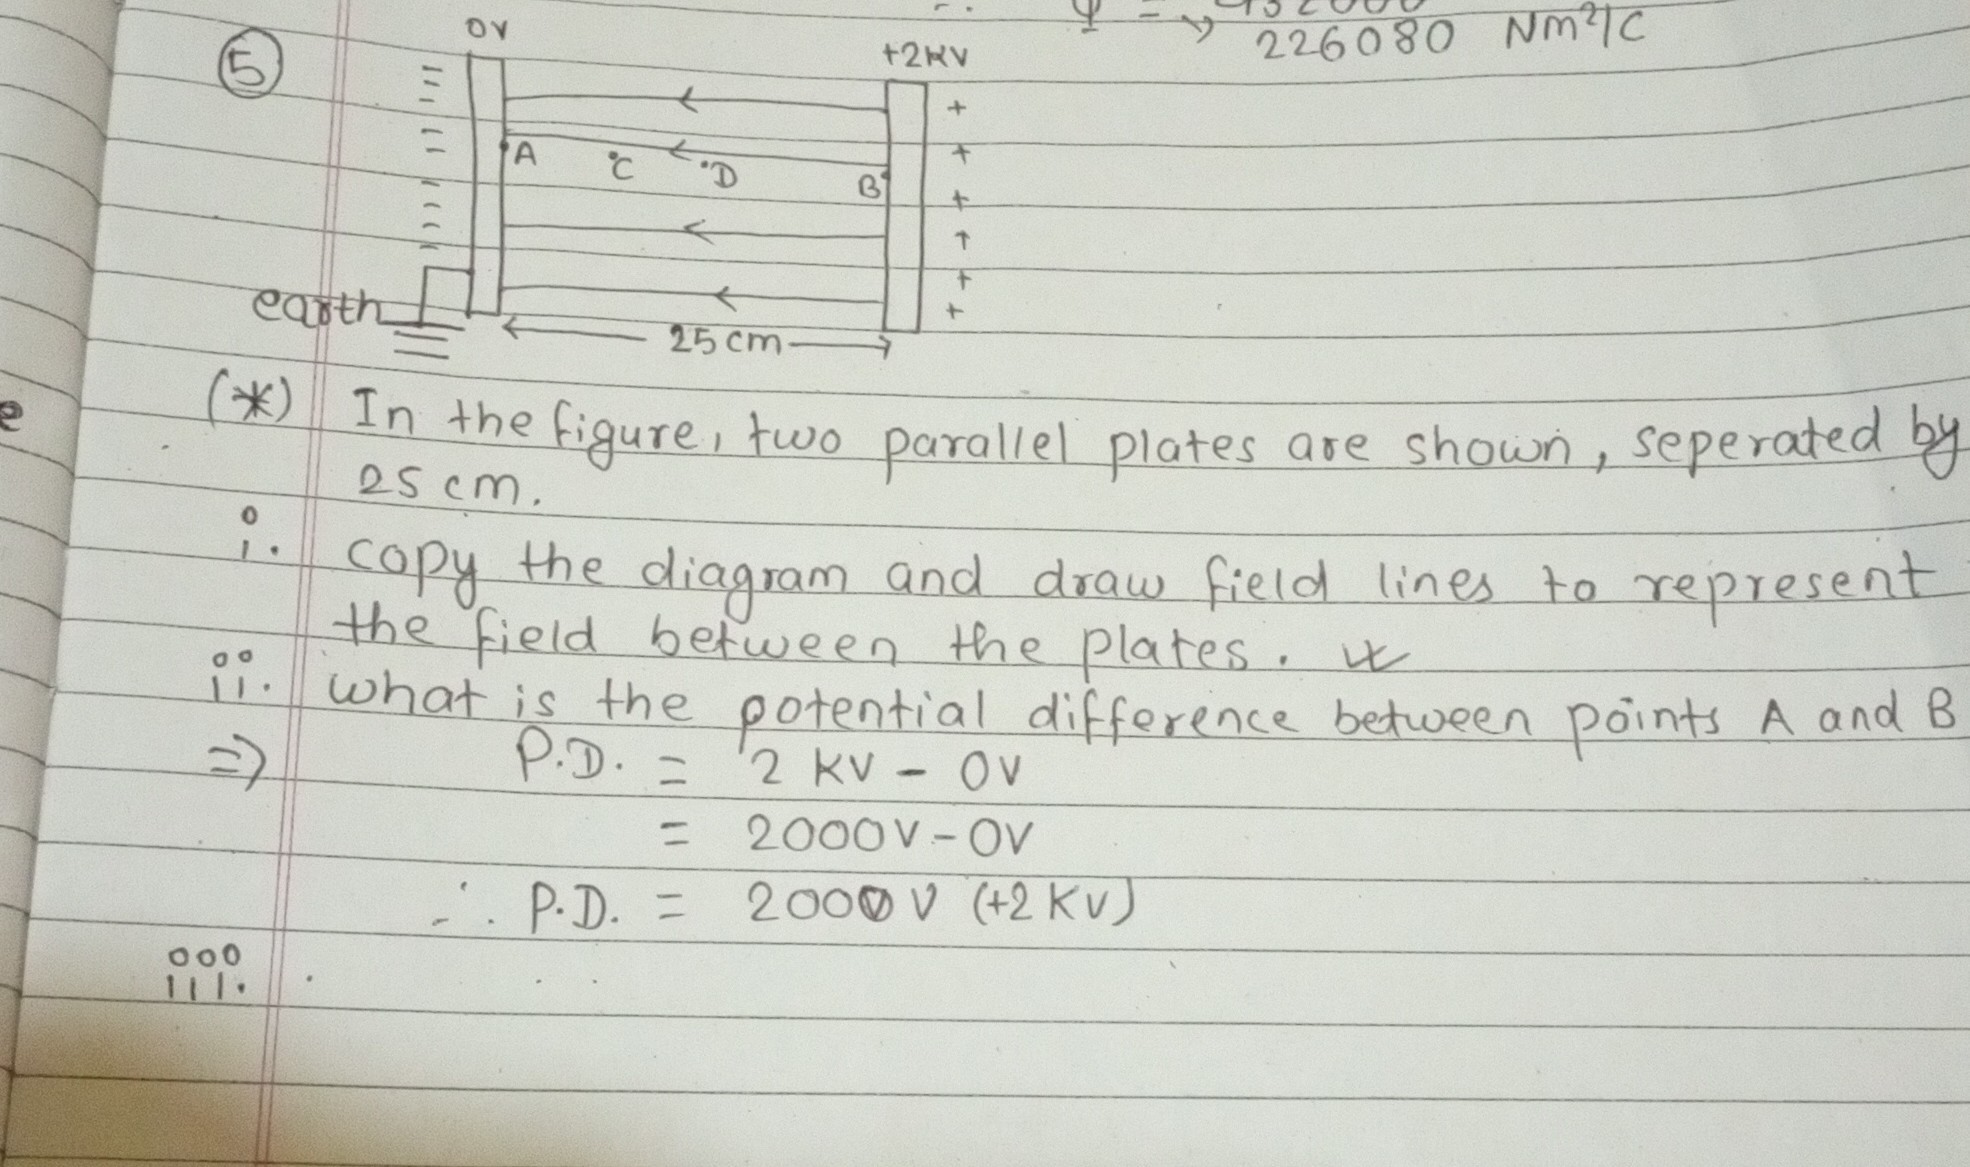 226080 Nm²/C
5
0V
+2KV
A
C
D
B
earth
25 cm
(*) In the figure, two parallel plates are shown, seperated by
25 cm.
i. copy the diagram and draw field lines to represent
the field between the plates.
ii. what is the potential difference between points A and B
=> P.D. = 2 KV - 0V
= 2000V - 0V
∴ P.D. = 2000V (+2 KV)
iii.